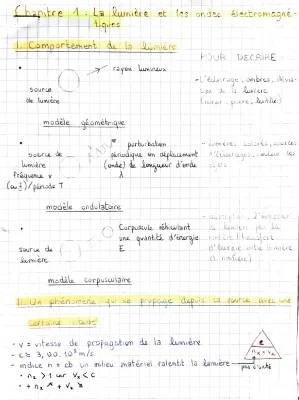 Chapitre 1 : La lumière et les ondes électromagné-
tiques
1. Comportement de la lumière
POUR DÉCRIRE
rayon lumineux
source
de lumière
- L'éclairage, ombres, dévia-
tion de la lumière
modèle géométrique
source de
lumière
fréquence ν
/période T
perturbation
périodique en déplacement
(onde) de longueur d'onde
λ
- lumière, couleurs, sources
d'éclairages, couleur des
modèle ondulatoire
source de
lumière
Corpuscule véhiculant
une quantité d'énergie
E
lumière par la
matière (transfert
d'énergie entre lumière
et matière)
modèle corpusculaire
Un phénomène qui se propage depuis sa source avec une
certaine vitesse
- v = vitesse de propagation de la lumière
- c ≈ 3,00.10⁸ m/s
- indice n → cb un milieu matériel ralentit la lumière
pas d'unité
• nₓ > 1 car vₓ < c
• + nₓ ↗ + vₓ ↘
c
nₓ × vₓ